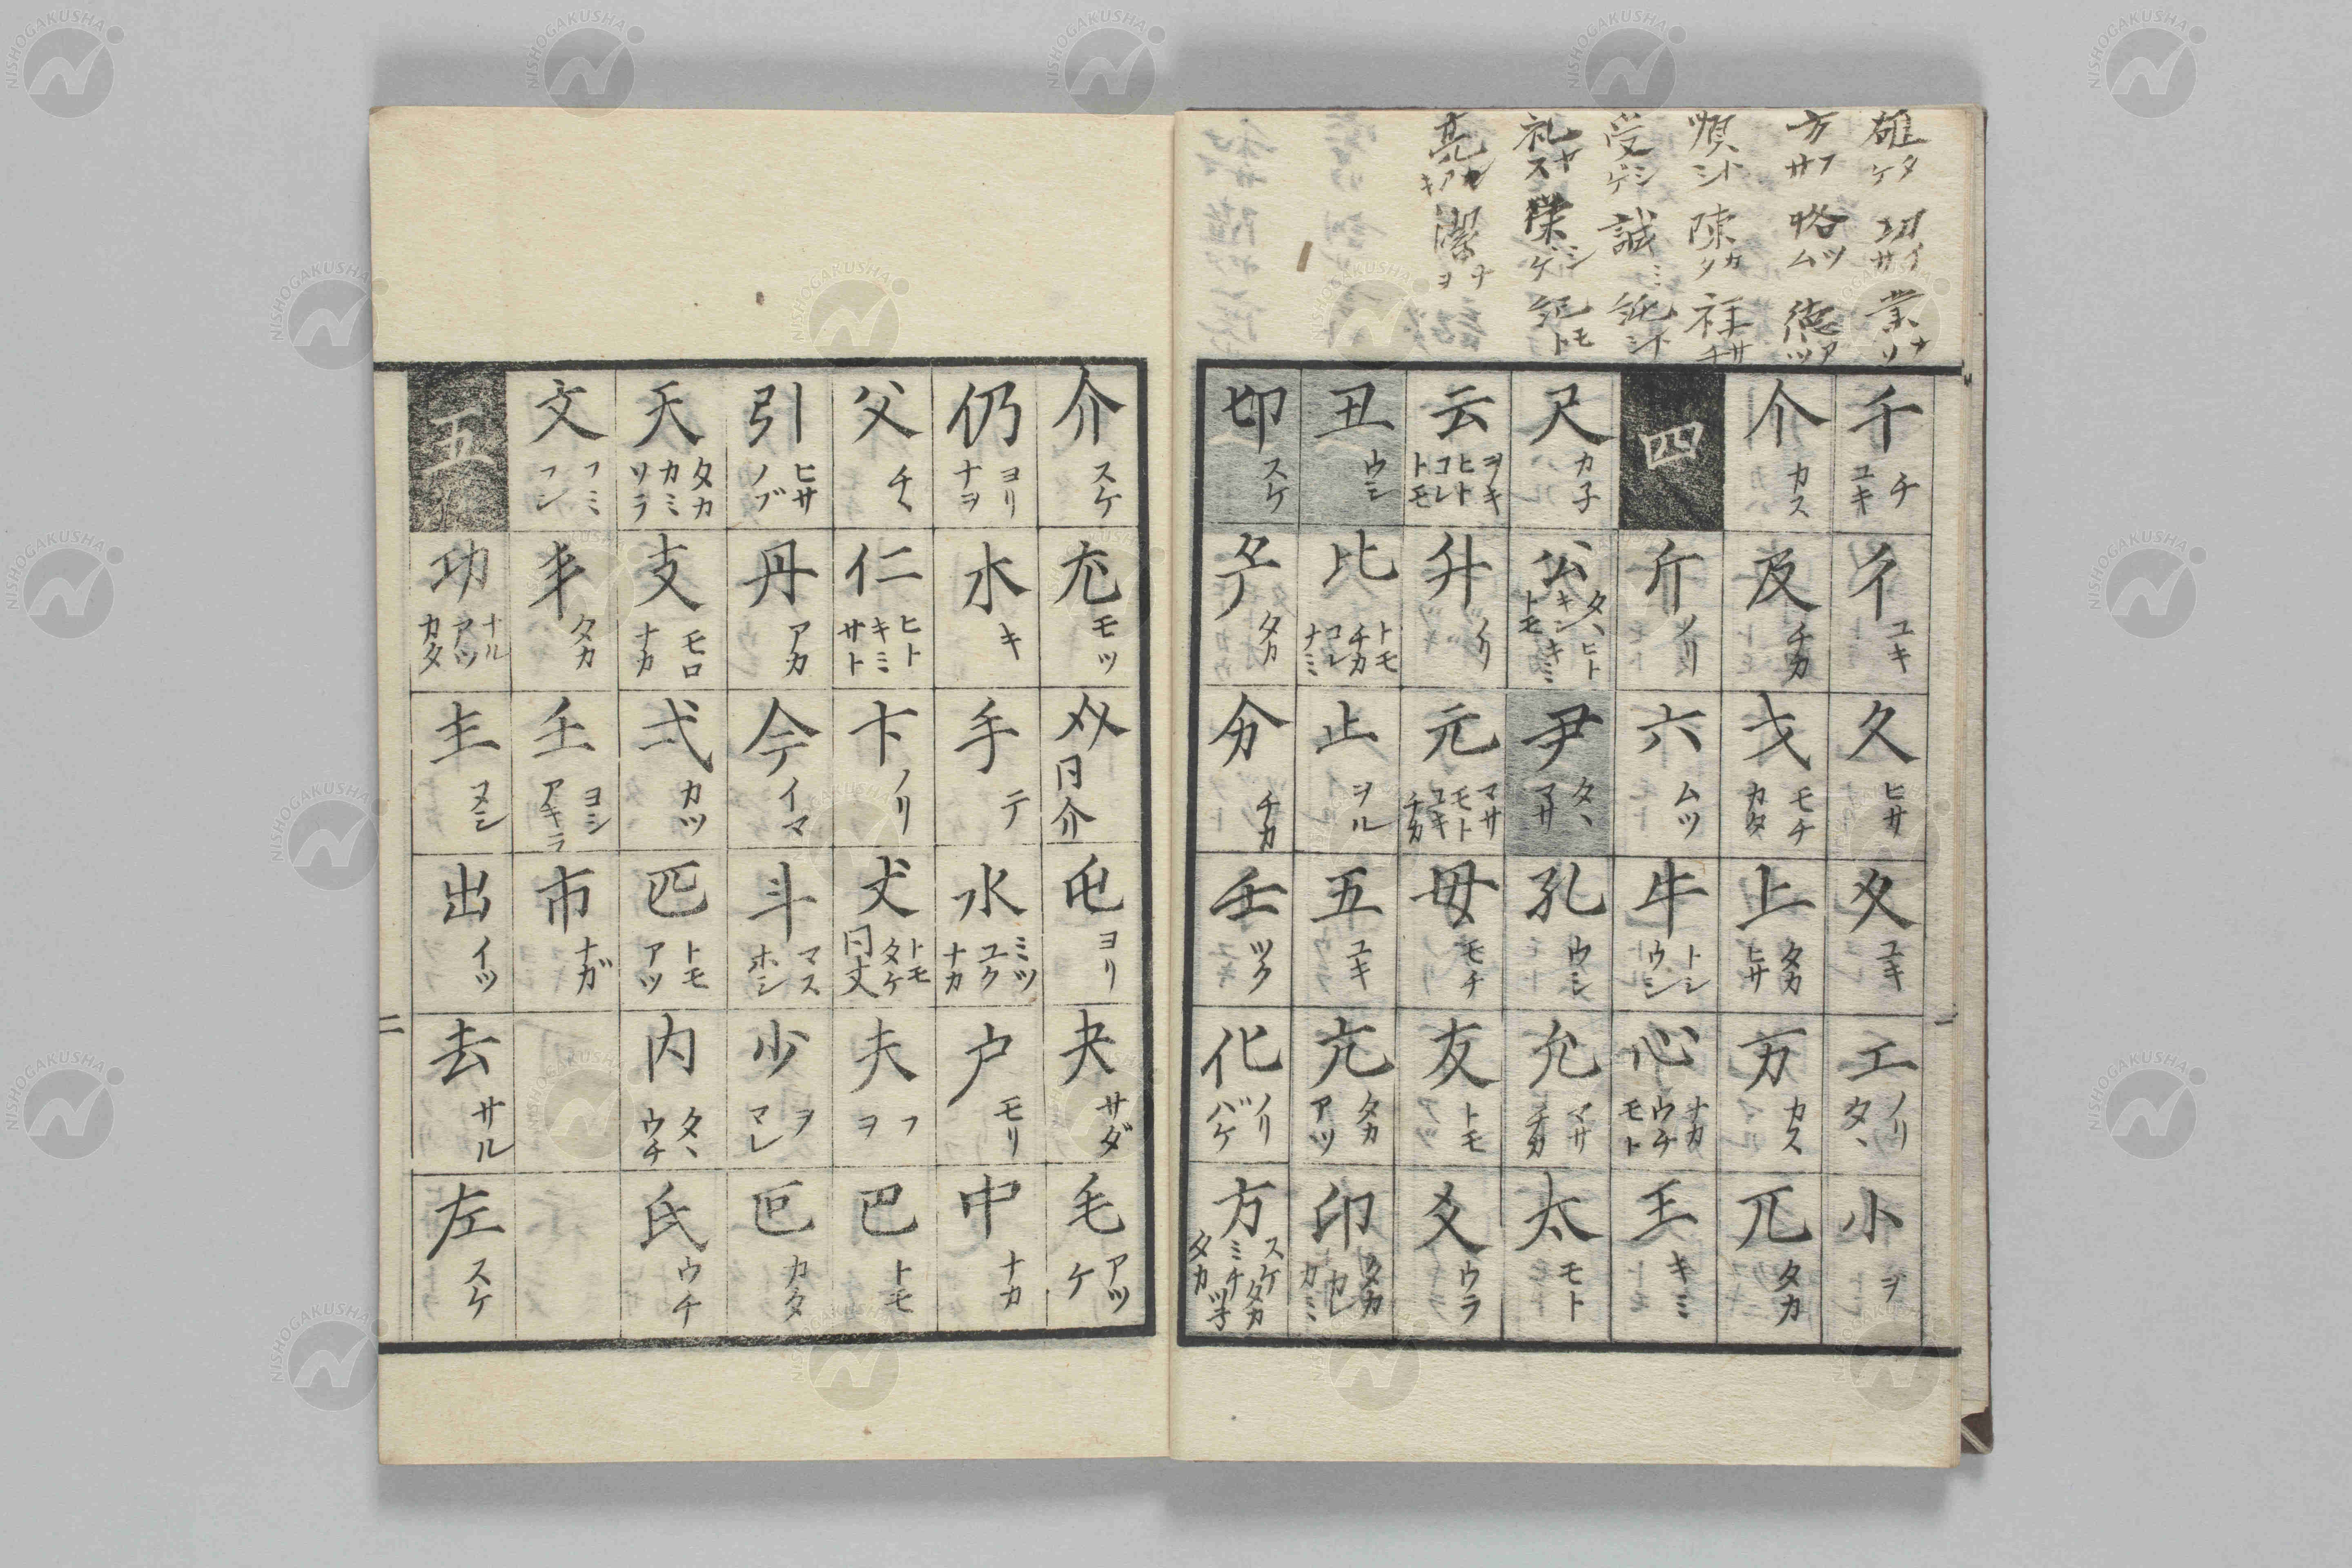 雄 タケ 功 イサ 業 ナリ
方 フサ 略 ツム 徳 アツ
順 トシ 陳 カタ 祥 サチ
受 シゲ 誠 ミ 紀 トシ
礼 ヤス 榮 シゲ 紀 モト
亮 アキ 潔 ナヲ
千 チ ユキ
彳 ユキ
久 ヒサ
夊 ユキ
工 ノリ タヽ
小 ヲ
个 カス
及 チカ
弋 モチ カタ
上 タカ ヒサ
万 カス
兀 タカ
四
斤 ノリ
六 ムツ
牛 トシ ウシ
心 ナカ ウチ モト
王 キミ
尺 カ子
公 タヽ ヒト キン キミ トモ
尹 タヽ マサ
孔 ウシ
允 マサ チカ
太 モト
云 ヲキ ヒト コレ トモ
升 ノリ
元 マサ モト ユキ チカ
毋 モチ
友 トモ
爻 ウラ
丑 ウシ
比 トモ チカ コレ ナミ
止 ヲル
五 ユキ
亢 タカ アツ
印 タカ カ子 カミ
卬 スケ
タカ
分 チカ
壬 ツク
化 ノリ バケ
方 スケ タカ ミチ ツ子 タカ
介 スケ
冘 モツ
㸚 同介
屯 ヨリ
夬 サダ
毛 アツ ケ
仍 ヨリ ナヲ
木 キ
手 テ
水 ミツ ユク ナカ
戸 モリ
中 ナカ
父 チヽ
仁 ヒト キミ サト
卞 ノリ
丈 トモ タケ 同丈
夫 フ ヲ
巴 トモ
引 ヒサ ノブ
丹 アカ
今 イマ
斗 マス ホシ
少 ヲ マレ
カタ
天 タカ カミ ソラ
支 モロ ナカ
弌 カツ
匹 トモ アツ
内 タヽ ウチ
氏 ウチ
文 フミ フシ
タカ
壬 ヨシ アキラ
市 ナガ
五
功 ナル アツ カタ
主 ヌシ
出 イツ
去 サル
左 スケ
二
NISHOGAKUSHA